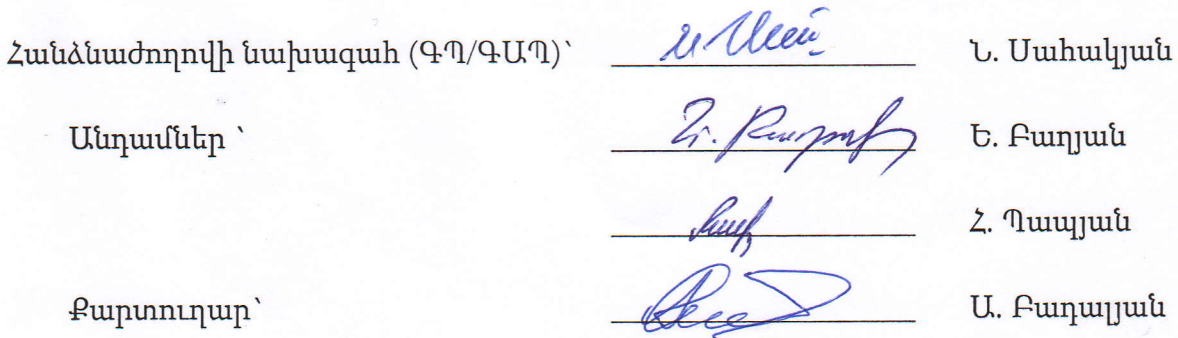 Հանձնաժողովի նախագահ (ԳՊ/ԳԱՊ)՝ Ն. Սահակյան
Անդամներ ՝ Ե. Բաղյան
Հ. Պապյան
Քարտուղար՝ Ա. Բադալյան